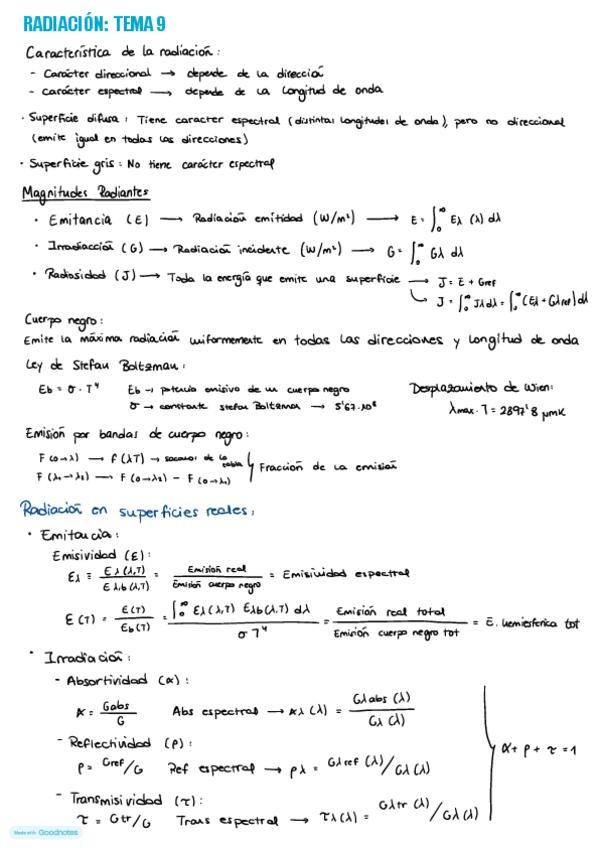 RADIACIÓN: TEMA 9
Característica de la radiación:
- Carácter direccional → depende de la dirección
- Carácter espectral → depende de la longitud de onda
· Superficie difusa: Tiene caracter espectral (distintas longitudes de onda), pero no direccional
(emite igual en todas las direcciones)
· Superficie gris: No tiene carácter espectral
Magnitudes Radiantes
· Emitancia (E) → Radiación emitida (W/m²) → E = ∫₀^∞ Eλ (λ) dλ
· Irradiacción (G) → Radiación incidente (W/m²) → G = ∫₀^∞ Gλ dλ
· Radiosidad (J) → Toda la energía que emite una superficie → J = E + Gref
↳ J = ∫₀^∞ Jλ dλ = ∫₀^∞ (Eλ + Gλref) dλ
Cuerpo negro:
Emite la máxima radiación uniformemente en todas las direcciones y longitud de onda
Ley de Stefan Boltzman:
Eb = σ · T⁴ Eb → potencia emisiva de un cuerpo negro Desplazamiento de Wien:
σ → constante stefan Boltzman → 5'67·10⁸ λmax · T = 2897'8 μmK
Emisión por bandas de cuerpo negro:
F (0→λ) → f (λT) → sacamos de la tabla
F (λ₁→λ₂) → F (0→λ₂) - F (0→λ₁) } Fracción de la emisión
Radiación en superficies reales:
· Emitancia:
Emisividad (ε):
ελ ≡ Eλ(λ,T) / Eλ,b(λ,T) = Emisión real / Emisión cuerpo negro = Emisividad espectral
ε(T) = E(T) / Eb(T) = ∫₀^∞ ελ(λ,T) Eλb(λ,T) dλ / σ T⁴ = Emisión real total / Emisión cuerpo negro tot = ε. hemisférica tot
· Irradiación:
- Absortividad (α):
α = Gabs / G Abs espectral → αλ (λ) = Gλabs (λ) / Gλ (λ)
- Reflectividad (ρ):
ρ = Gref/G Ref espectral → ρλ = Gλref (λ)/Gλ (λ) } α + ρ + τ = 1
- Transmisividad (τ):
τ = Gtr/G Trans espectral → τλ(λ) = Gλtr (λ)/Gλ(λ)
Made with Goodnotes